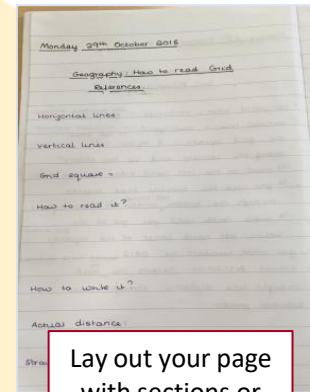 Monday 29th October 2018
Geography: How to read Grid
References.
Horizontal lines
Vertical lines
Grid square =
How to read it?
How to write it?
Actual distance:
Lay out your page
with sections or